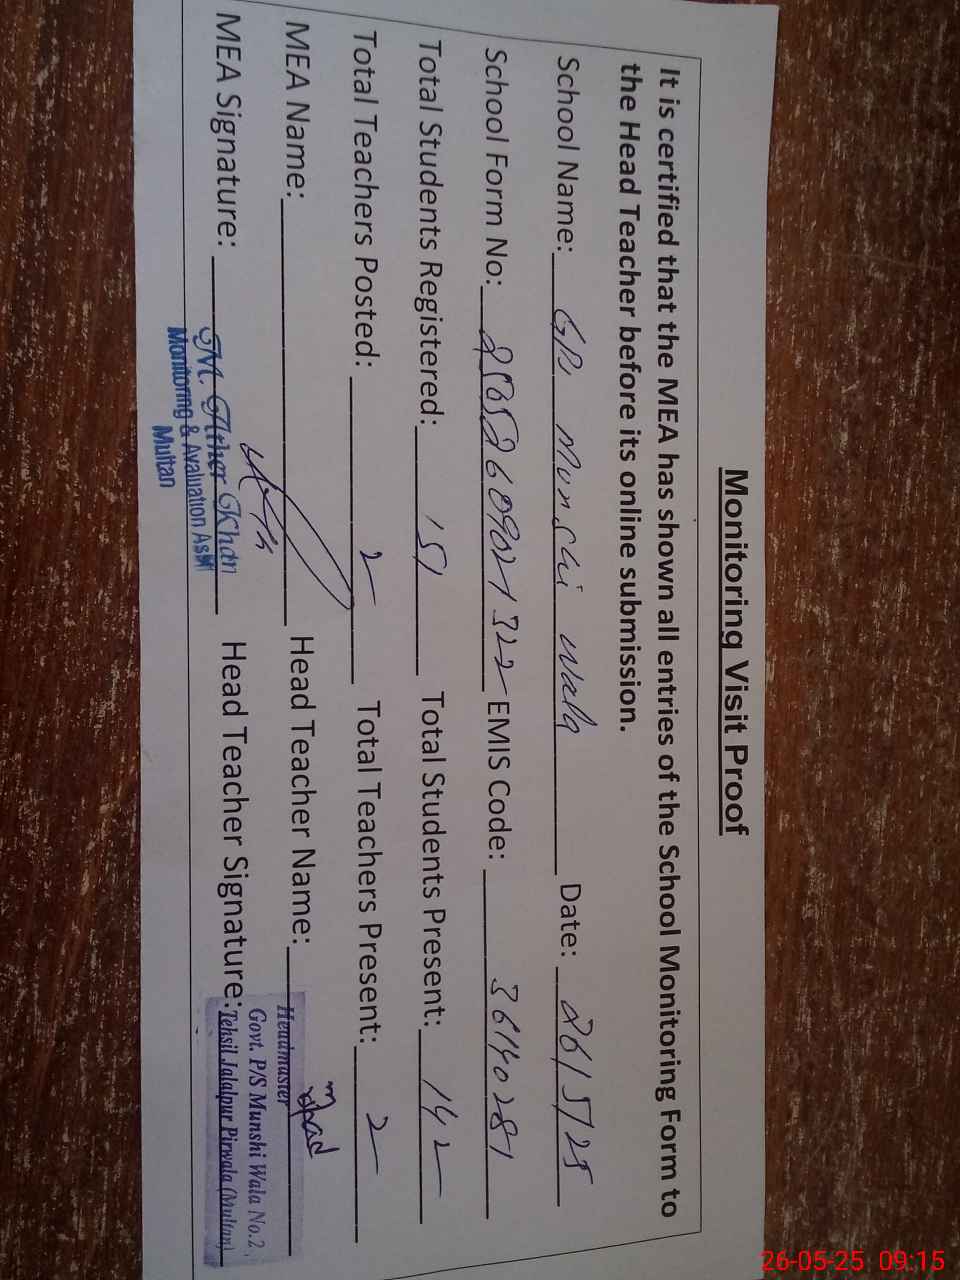 Monitoring Visit Proof
It is certified that the MEA has shown all entries of the School Monitoring Form to
the Head Teacher before its online submission.
School Name: GPS Munshi wala Date: 26/5/25
School Form No: EMIS Code: 36140281
Total Students Registered: 151 Total Students Present: 142
Total Teachers Posted: 2 Total Teachers Present: 2
MEA Name: Head Teacher Name:
MEA Signature: Head Teacher Signature:
M. Ather Khan
Monitoring & Avaluation Asstt
Multan
Headmaster
Govt. P/S Munshi Wala No.2,
Tehsil Jalalpur Pirwala (Multan)
26-05-25 09:15